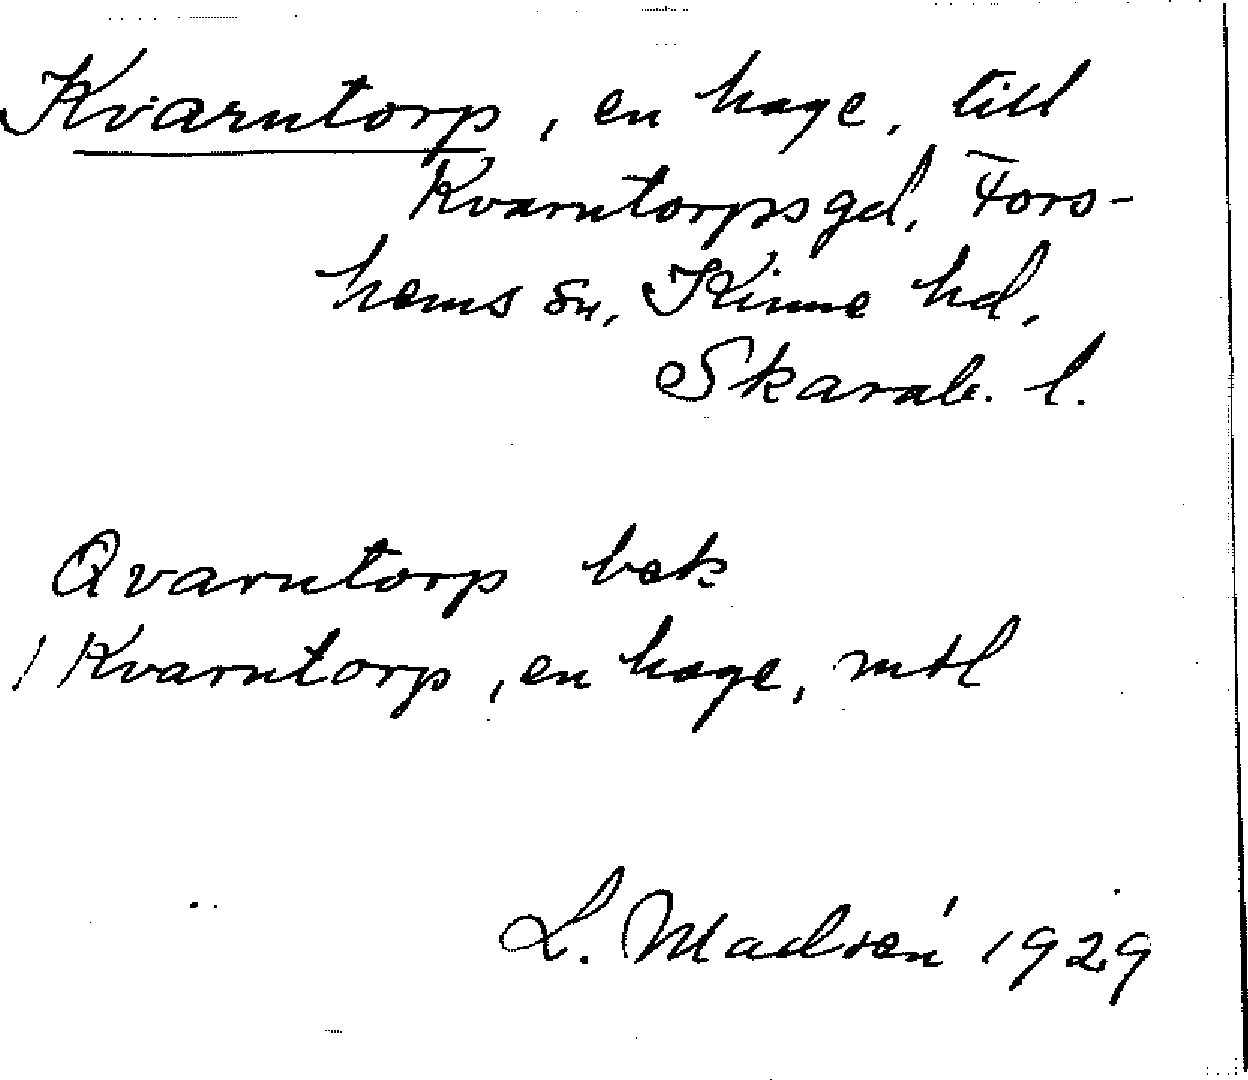 Kvarntorp, en hage, till
Kvarntorpsgd, Fors-
hems sn, Kinne hd,
Skarab. l.
Qvarntorp bek
/ Kvarntorp, en hage, mtl
L. Madsén 1929